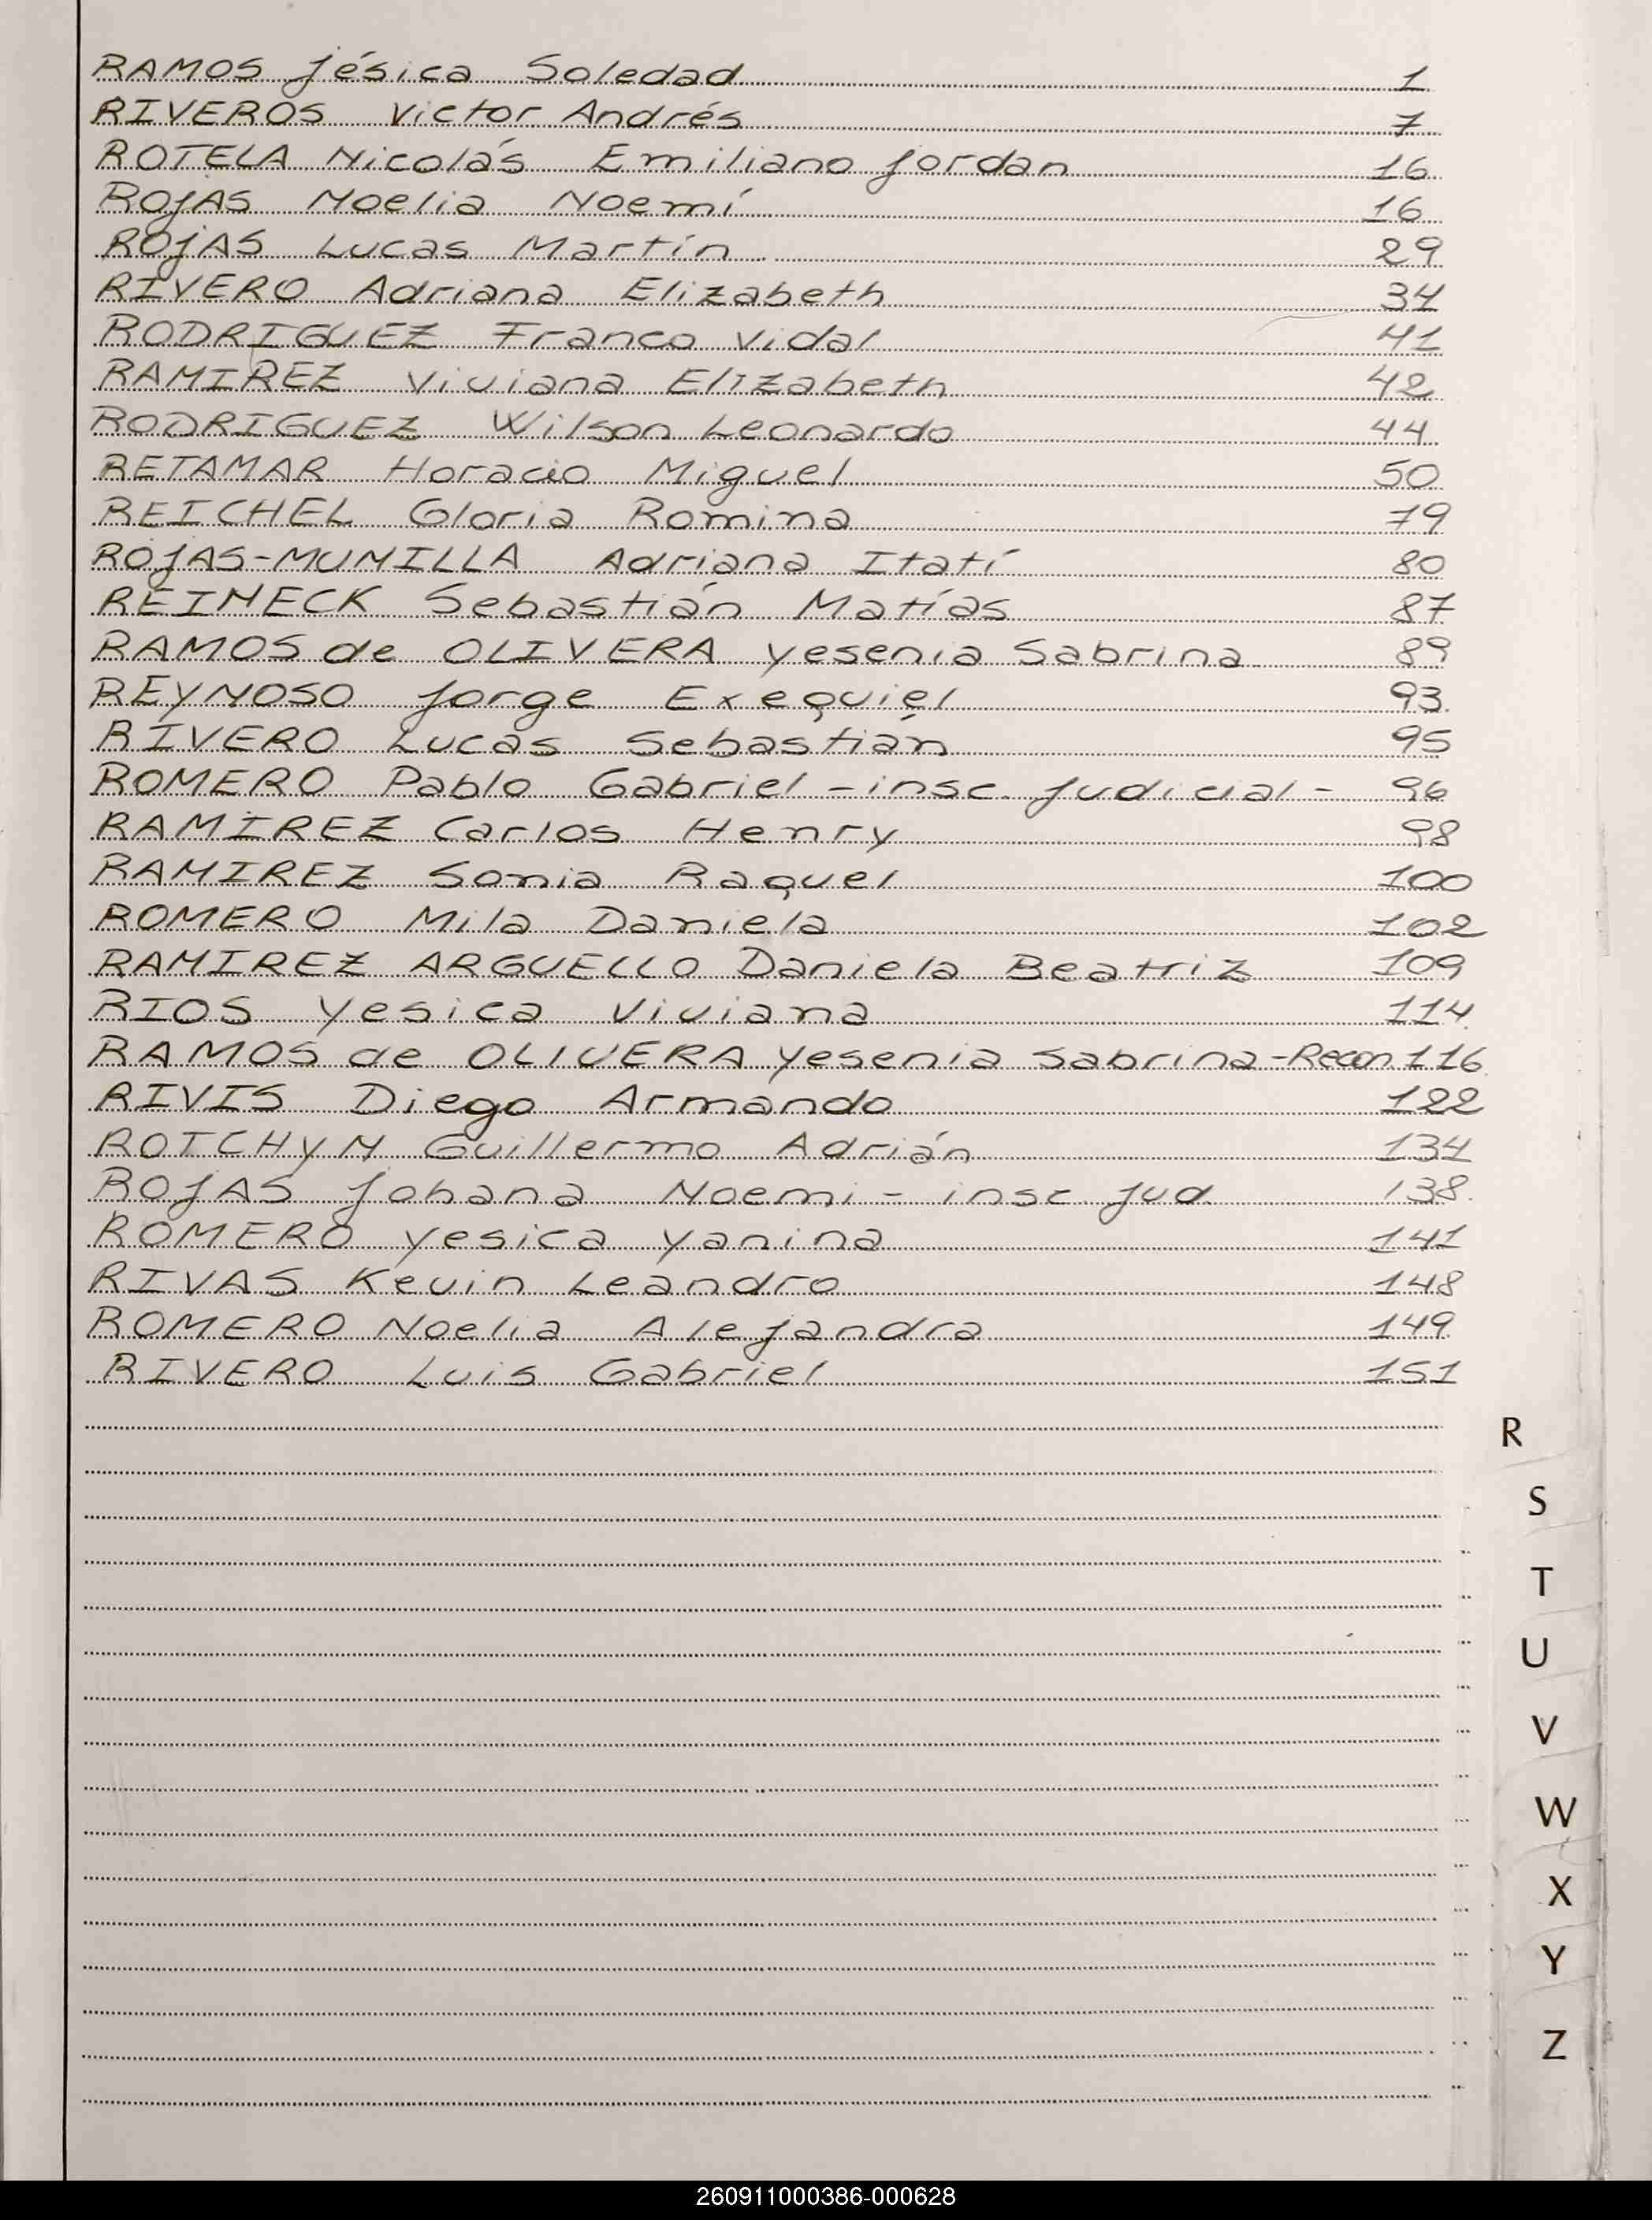 RAMOS Jésica Soledad 1
RIVEROS Victor Andrés 7
ROTELA Nicolás Emiliano Jordan 16
ROJAS Noelia Noemí 16
ROJAS Lucas Martín 29
RIVERO Adriana Elizabeth 34
RODRIGUEZ Franco Vidal 41
RAMIREZ Viviana Elizabeth 42
RODRIGUEZ Wilson Leonardo 44
RETAMAR Horacio Miguel 50
REICHEL Gloria Romina 79
ROJAS-MUNILLA Adriana Itatí 80
REINECK Sebastián Matías 87
RAMOS de OLIVERA Yesenia Sabrina 89
REYNOSO Jorge Exequiel 93
RIVERO Lucas Sebastián 95
ROMERO Pablo Gabriel - insc. Judicial - 96
RAMIREZ Carlos Henry 98
RAMIREZ Sonia Raquel 100
ROMERO Mila Daniela 102
RAMIREZ ARGUELLO Daniela Beatriz 109
RIOS Yesica Viviana 114
RAMOS de OLIVERA Yesenia Sabrina - Recon. 116
RIVIS Diego Armando 122
ROTCHYN Guillermo Adrián 134
ROJAS Johana Noemi - insc Jud 138
ROMERO Yesica Yanina 141
RIVAS Kevin Leandro 148
ROMERO Noelia Alejandra 149
RIVERO Luis Gabriel 151
R
S
T
U
V
W
X
Y
Z
260911000386-000628